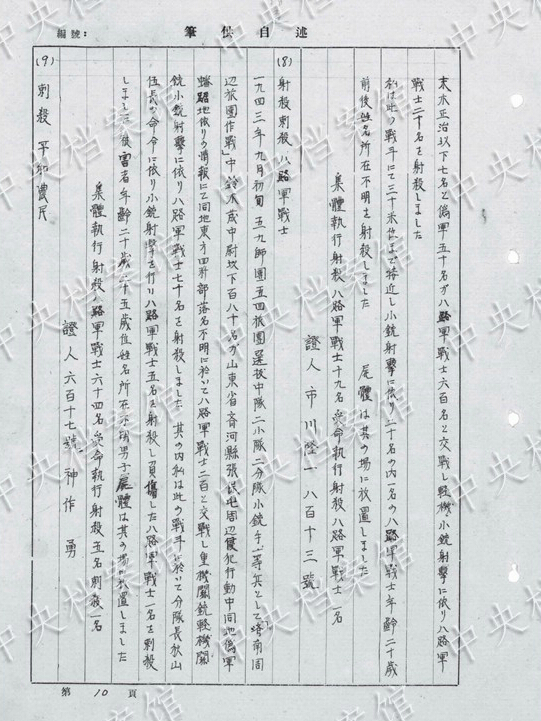 述自供筆
編號:
末木正治以下七名と偽軍五十名が八路軍戰士六百名と交戰し輕機小銃射撃に依り八路軍
戰士二十名を射殺しました
私は此の戰斗にて三十米位まで接近し小銃射撃に依り二十名の内一名の八路軍戰士年齡二十歲
前後姓名所在不明を射殺しました 屍體は其の場に放置しました
集體執行射殺八路軍戰士十九名受命執行射殺八路軍戰士一名
證人市川隆一 八百十三號
(8) 射殺刺殺八路軍戰士
一九四三年九月初旬五九師團五四旅團選抜中隊二小隊二分隊小銃手一等兵として「済南周
辺旅團作戰」中鈴木茂中尉以下百八十名が山東省斎河縣張保屯周辺侵犯行動中同地偽軍
蟠踞地依りの情報にて同地東方四粁部落名不明に於いて八路軍戰士二百と交戰し重機關銃輕機關
銃小銃射撃に依り八路軍戰士七十名を射殺しました 其の内私は此の戰斗に於いて分隊長秋山
伍長の命令に依り小銃射撃を行り八路軍戰士五名を射殺し負傷した八路軍戰士一名を刺殺
しました 被害者年齡二十歲二十五歲位姓名所在不明男子屍體は其の場に放置しました
集體執行射殺八路軍戰士六十四名受命執行射殺五名刺殺一名
證人六百十七號 神作勇
(9) 刺殺平和農民
第10頁
中央档案馆